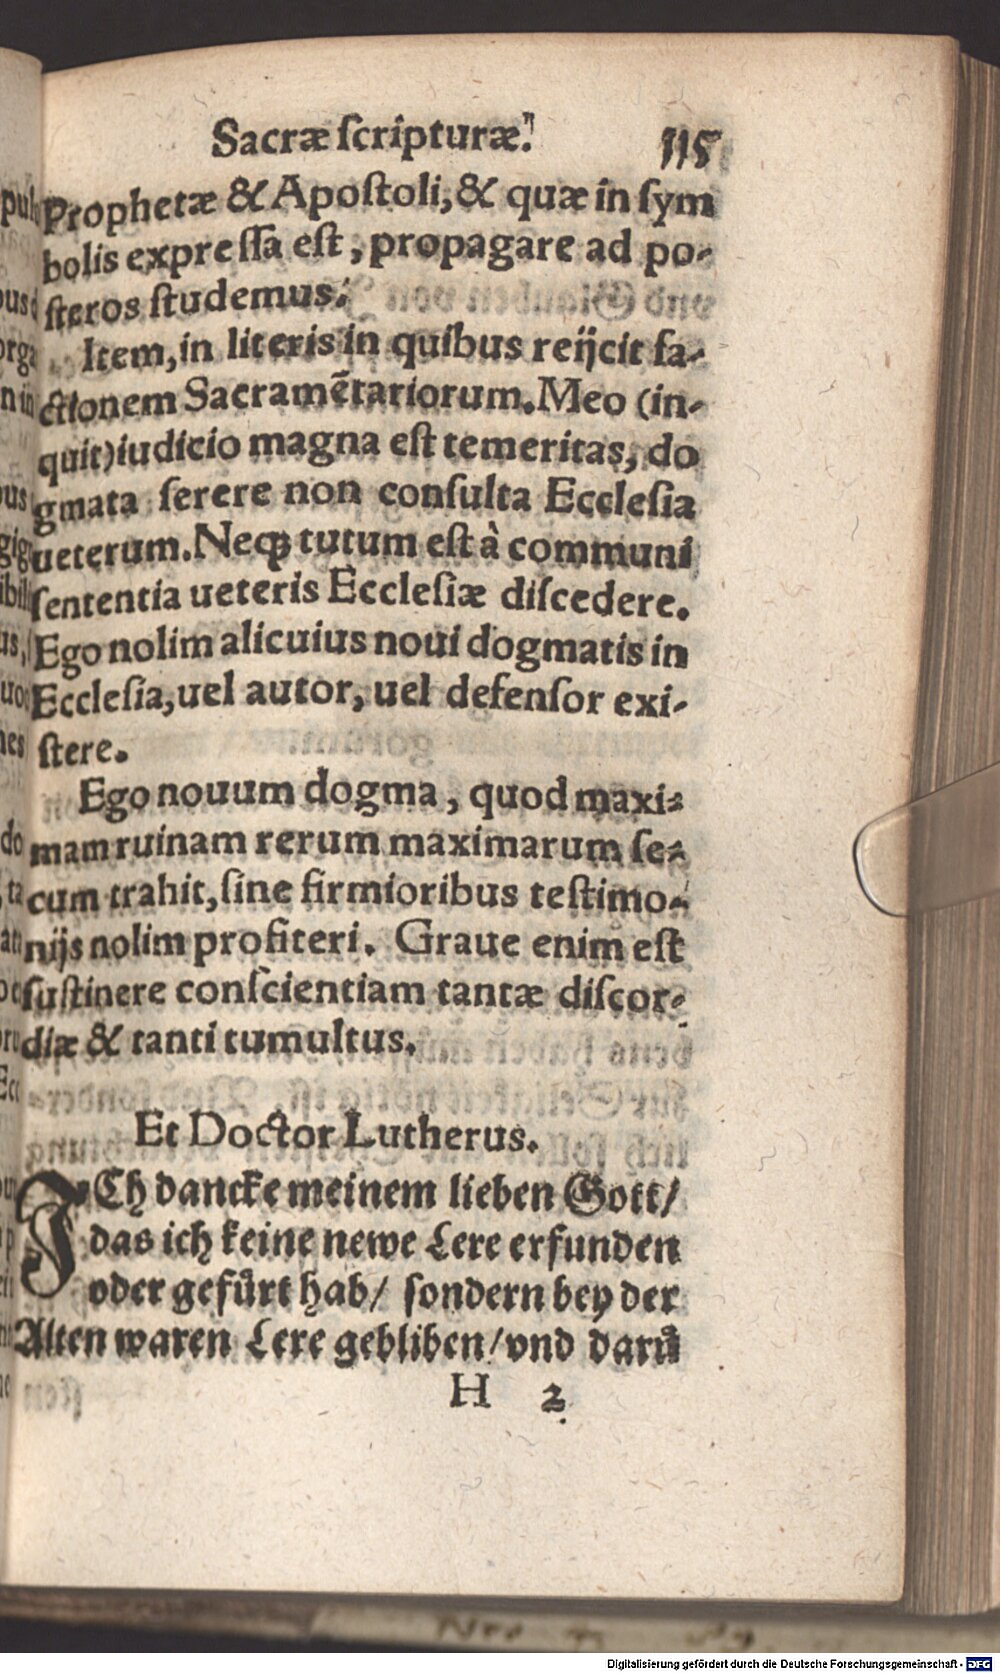 Sacræ ſcripturæ. 115
Prophetæ & Apoſtoli, & quæ in ſym
bolis expreſſa eſt, propagare ad po-
ſteros ſtudemus.
Item, in literis in quibus reijcit fa-
ctionem Sacramẽtariorum. Meo (in-
quit) iudicio magna eſt temeritas, do
gmata ſerere non conſulta Eccleſia
ueterum. Neqꝫ tutum eſt à communi
ſententia ueteris Eccleſiæ diſcedere.
Ego nolim alicuius noui dogmatis in
Eccleſia, uel autor, uel defenſor exi-
ſtere.
Ego nouum dogma, quod maxi-
mam ruinam rerum maximarum ſe-
cum trahit, ſine firmioribus teſtimo-
nijs nolim profiteri. Graue enim eſt
ſuſtinere conſcientiam tantæ diſcor-
diæ & tanti tumultus.
Et Doctor Lutherus.
ICh dancke meinem lieben Gott/
das ich keine newe Lere erfunden
oder gefuͤrt hab/ ſondern bey der
Alten waren Lere gebliben/ vnd darũ
H 2
Digitalisierung gefördert durch die Deutsche Forschungsgemeinschaft - DFG